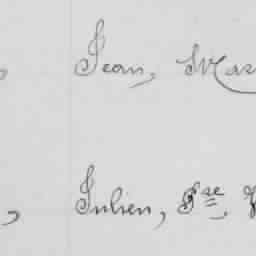 , Jean, Mar
, Julien, Fse,